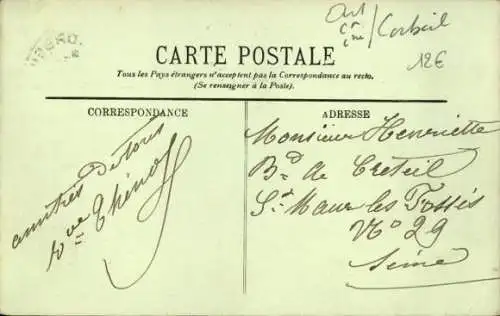 Art
Cr / Corbeil
ine
12€
CARTE POSTALE
Tous les Pays étrangers n'acceptent pas la Correspondance au recto.
(Se renseigner à la Poste).
CORRESPONDANCE
amitiés De tous
Vve Thénot
ADRESSE
Monsieur Henriette
Bd de Creteil
St Maur les Fossés
No 29
Seine